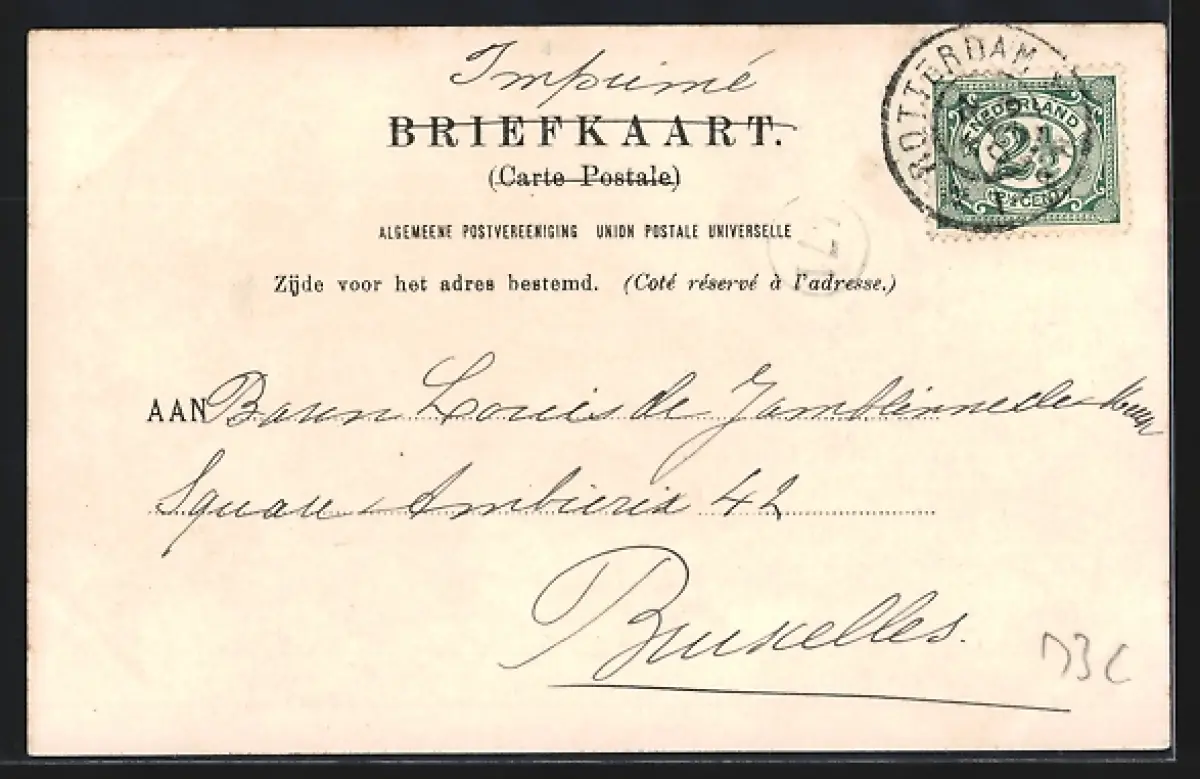 Imprimé
BRIEFKAART.
(Carte Postale)
ALGEMEENE POSTVEREENIGING UNION POSTALE UNIVERSELLE
Zijde voor het adres bestemd. (Coté réservé à l'adresse.)
ROTTERDAM
NEDERLAND
2½
2½ CENT
AAN Baron Louis de Jamblinne de Meux
Square Ambiorix 42
Bruxelles.